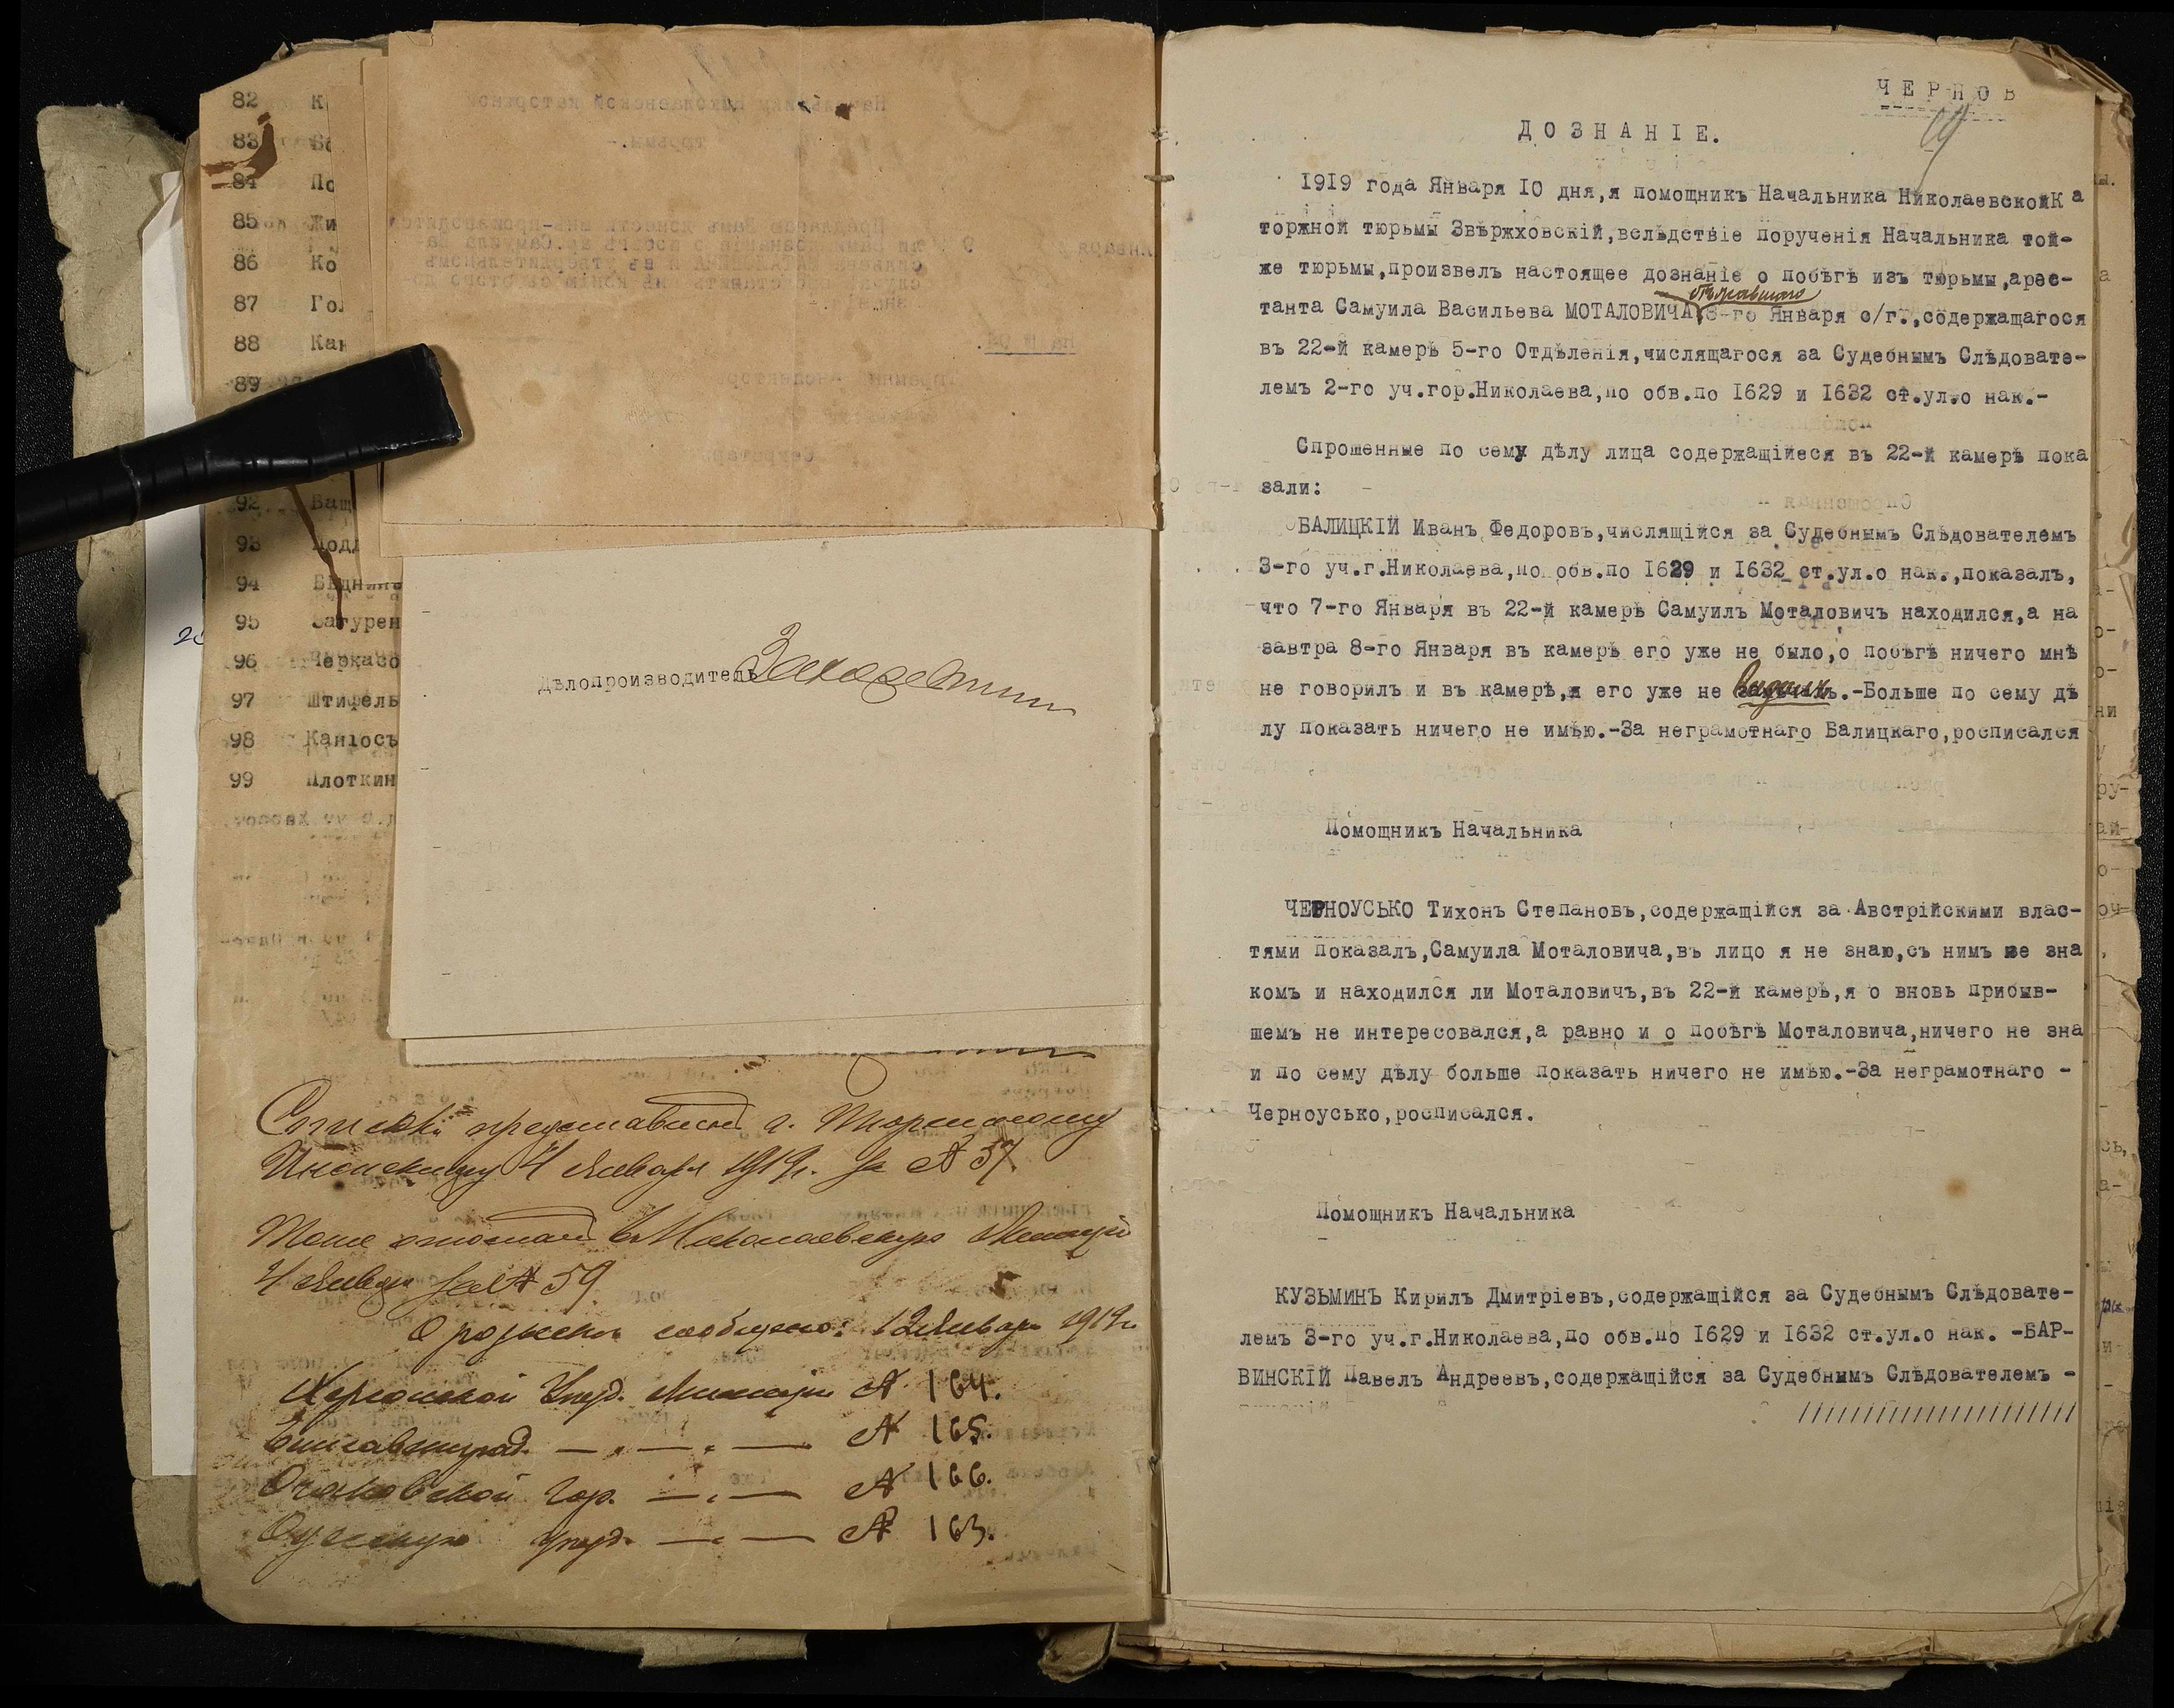 82 К
83 Ва
84 По
85 Жи
86 Ко
87 Гол
88 Кан
89
92 Ващ
93 Подд
94 Бѣдникъ
95 Затурен
96 Черкасо
97 Штифель
98 Канiосъ
99 Плоткин
Дѣлопроизводитель
Списки представлены г. Тюремному
Инспектору 4 Января 1919г. за № 57
Тоже
4 Января за № 59
О розыскѣ сообщено: 12 Января 1919г.
Херсонской Уѣзд. Милиціи № 164.
Елисаветград. — „ — „ — № 165.
Очаковской Гор. — „ — № 166.
уѣзд. — „ — № 163.
ЧЕРНОВ
ДОЗНАНІЕ.
1919 года Января 10 дня,я помощникъ Начальника НиколаевскойКа
торжной тюрьмы Звѣржховскій,вслѣдствіе порученія Начальника той-
же тюрьмы,произвелъ настоящее дознаніе о побѣгѣ изъ тюрьмы,арес-
бѣжавшаго
танта Самуила Васильева МОТАЛОВИЧА 3-го Января с/г.,содержащагося
въ 22-й камерѣ 5-го Отдѣленія,числящагося за Судебнымъ Слѣдовате-
лемъ 2-го уч.гор.Николаева,по обв.по 1629 и 1632 ст.ул.о нак.-
Спрошенные по сему дѣлу лица содержащійеся въ 22-й камерѣ пока
зали:
БАЛИЦКІЙ Иванъ Федоровъ,числящійся за Судебнымъ Слѣдователемъ
3-го уч.г.Николаева,по обв.по 1629 и 1632 ст.ул.о нак.,показалъ,
что 7-го Января въ 22-й камерѣ Самуилъ Моталовичъ находился,а на
завтра 8-го Января въ камерѣ его уже не было,о побѣгѣ ничего мнѣ
не говорилъ и въ камерѣ,я его уже не видѣлъ.-Больше по сему дѣ
лу показать ничего не имѣю.-За неграмотнаго Балицкаго,росписался
Помощникъ Начальника
ЧЕРНОУСЬКО Тихонъ Степановъ,содержащійся за Австрійскими влас-
тями показалъ,Самуила Моталовича,въ лицо я не знаю,съ нимъ не зна
комъ и находился ли Моталовичъ,въ 22-й камерѣ,я о вновь прибыв-
шемъ не интересовался,а равно и о побѣгѣ Моталовича,ничего не зна
и по сему дѣлу больше показать ничего не имѣю.-За неграмотнаго -
Черноусько,росписался.
Помощникъ Начальника
КУЗЬМИНЪ Кирилъ Дмитріевъ,содержащійся за Судебнымъ Слѣдовате-
лемъ 3-го уч.г.Николаева,по обв.по 1629 и 1632 ст.ул.о нак. -БАР-
ВИНСКІЙ Павелъ Андреевъ,содержащійся за Судебнымъ Слѣдователемъ -
//////////////////////